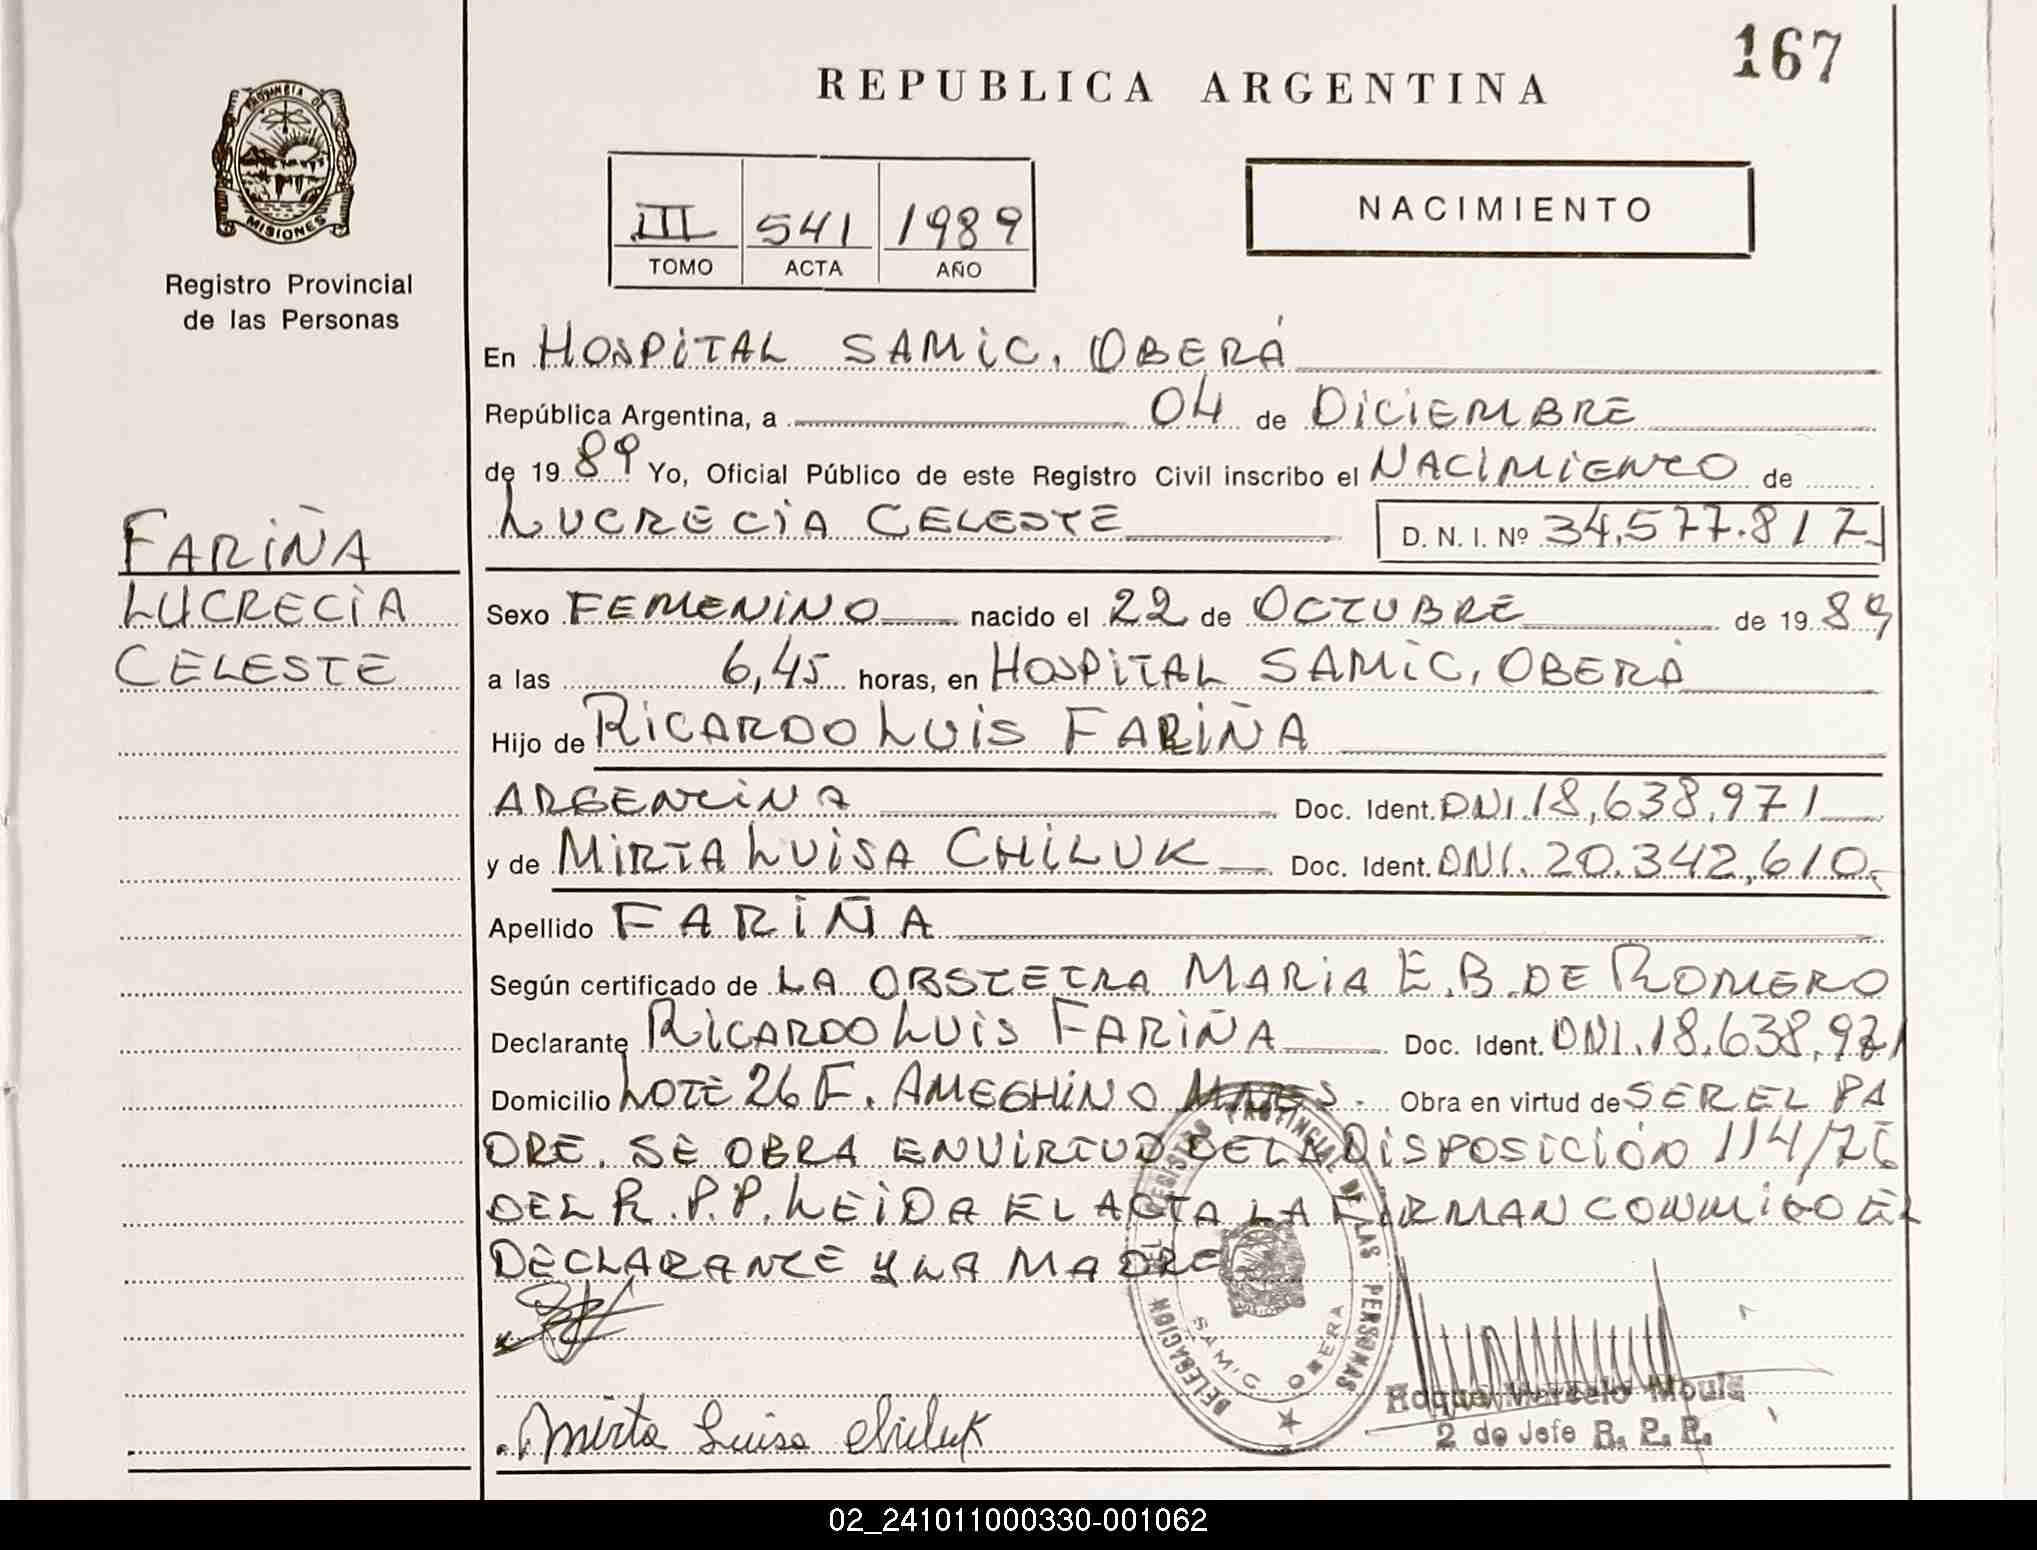 167
REPUBLICA ARGENTINA
PROVINCIA DE
MISIONES
Registro Provincial
de las Personas
III 541 1989
TOMO ACTA AÑO
NACIMIENTO
FARIÑA
LUCRECIA
CELESTE
En HOSPITAL SAMIC. OBERÁ
República Argentina, a 04 de DICIEMBRE
de 1989 Yo, Oficial Público de este Registro Civil inscribo el NACIMIENTO de
LUCRECIA CELESTE D. N. I. Nº 34.577.817
Sexo FEMENINO nacido el 22 de OCTUBRE de 1989
a las 6,45 horas, en HOSPITAL SAMIC, OBERÁ
Hijo de RICARDO LUIS FARIÑA
ARGENTINA Doc. Ident. DNI. 18,638,971
y de MIRTA LUISA CHILUK Doc. Ident. DNI. 20.342,610
Apellido FARIÑA
Según certificado de LA OBSTETRA MARIA E. B. DE ROMERO
Declarante RICARDO LUIS FARIÑA Doc. Ident. DNI. 18.638,971
Domicilio LOTE 26 F. AMEGHINO MNES. Obra en virtud de SER EL PA
DRE. SE OBRA EN VIRTUD DE LA DISPOSICIÓN 114/76
DEL R.P.P. LEIDA EL ACTA LA FIRMAN CONMIGO EL
DECLARANTE Y LA MADRE
DELEGACION DEL REGISTRO PROVINCIAL DE LAS PERSONAS
SAMIC OBERA
Mirta Luisa Chiluk
Roque Marcelo
2 do Jefe R. P. P.
02_241011000330-001062